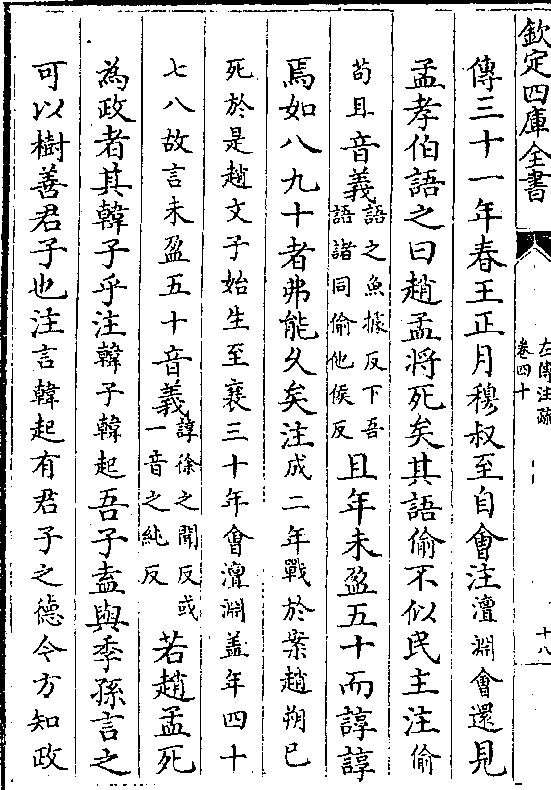 欽定四庫全書
左傳注疏
卷四十
十八
傳三十一年春王正月穆叔至自會注澶淵會還見
孟孝伯語之曰趙孟將死矣其語偷不似民主注偷
苟且音義語之魚據反下吾
語諸同偷他侯反
且年未盈五十而諄諄
焉如八九十者弗能久矣注成二年戰於鞌趙朔已
死於是趙文子始生至襄三十年會澶淵盖年四十
七八故言未盈五十音義諄徐之閏反或
一音之純反
若趙孟死
為政者其韓子乎注韓子韓起吾子盍與季孫言之
可以樹善君子也注言韓起有君子之德今方知政